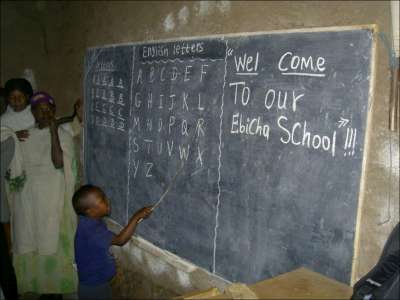 English letters
A B C D E F
G H I J K L
M N O P Q R
S T U V W X
Y Z
"Wel Come
To our
EbiCha School"!!!